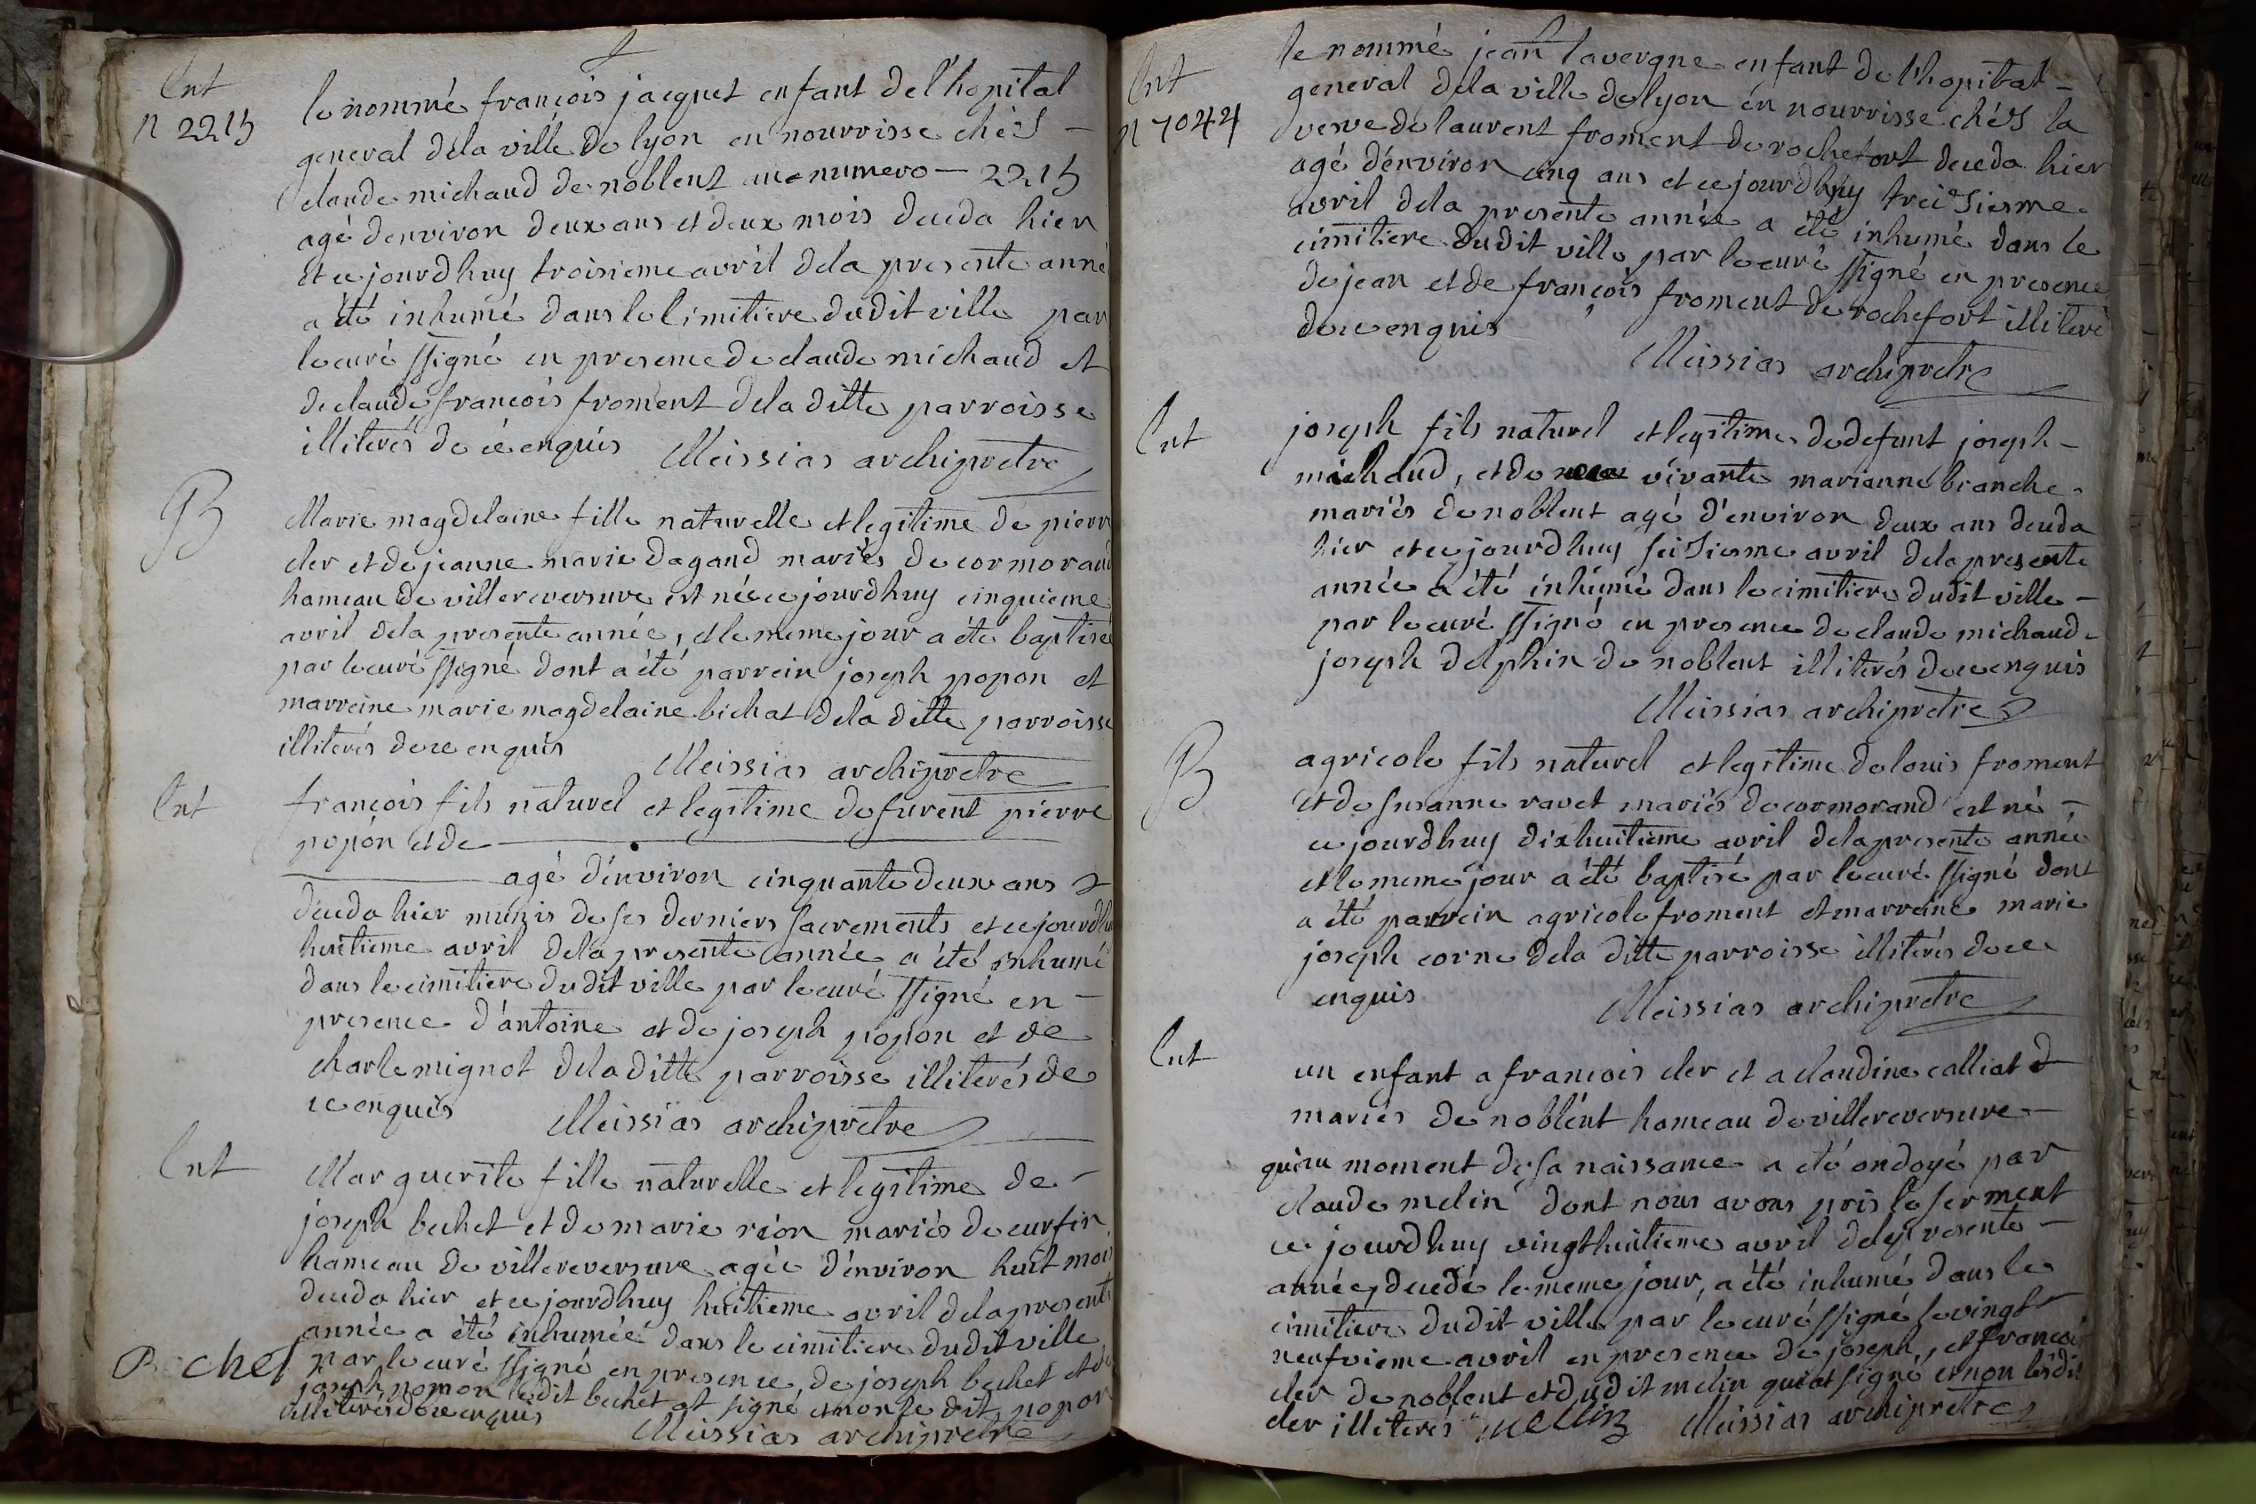 Ent
n 2215
le nommé françois jacquet enfant de l'hopital
general dela ville de lyon en nourrisse chés
claude michaud de noblent au numero — 2215
agé denviron deux ans et deux mois deceda hier
et ce jourdhuy troisieme avril dela presente anné
a été inhumé dans le Cimitiere dudit ville par
le curé ssigné en presence de claude michaud et
de claude françois froment dela ditte parroisse
illiterés de ce enquis Meissias archiprètre
B
Marie magdelaine fille naturelle et legitime de pierre
cler et de jeanne marie dagand mariés de cormorand
hameau de villereversure est née ce jourdhuy cinquieme
avril dela presente année, et le meme jour a été baptisé
par le curé ssigné dont a été parrein joseph popon et
marreine marie magdelaine bichat dela ditte parroisse
illiterés de ce enquis
Meissias archiprètre
Ent
françois fils naturel et legitime de furent pierre
popon et de
agé d'environ cinquante deux ans
deceda hier munis de ses derniers sacrements et ce jourdhu
huitieme avril dela presente année a été inhumé
dans le cimitiere dudit ville par le curé ssigné en
presence d'antoine et de joseph popon et de
charle mignot dela ditte parroisse illiterés de
ce enquis Meissias archiprètre
Ent
Marguerite fille naturelle et legitime de
joseph bechet et de marie réon mariés de curfin
hameau de villereversure agée d'environ huit moi
deceda hier et ce jourdhuy huitieme avril dela presente
année a été inhumée dans le cimitiere dudit ville
par le curé ssigné en presence de joseph bechet et de
Bechet
joseph popon ledit bechet at signé et non le dit popon
illiterés de ce enquis
Meissias archiprètre
Ent
n 7044
le nommé jean lavergne enfant de l'hopital
general dela ville de lyon en nourrisse chés la
vesve de laurent froment de rochefort deceda hier
agé d'environ cinq ans et ce jourdhuy treisiesme
avril dela presente année a été inhumé dans le
cimitiere dudit ville par le curé ssigné en presence
de jean et de françois froment de rochefort illiteré
de ce enquis
Meissias archiprètre
Ent
joseph fils naturel et legitime de defunt joseph
michaud, et de vivante marianne branche
mariés de noblent agé d'environ deux ans deceda
hier et ce jourdhuy seisiesme avril dela presente
année a été inhumé dans le cimitiere dudit ville
par le curé ssigné en presence de claude michaud
joseph delphin de noblent illiterés de ce enquis
Meissias archiprètre
B
agricole fils naturel et legitime de louis froment
et de susanne ravet mariés de cormorand est né
ce jourdhuy dixhuitieme avril dela presente année
et le meme jour a été baptisé par le curé ssigné dont
a été parrein agricole froment et marreine marie
joseph corne dela ditte parroisse illiterés de ce
enquis
Meissias archiprètre
Ent
un enfant a francois cler et a claudine calliat
mariés de noblent hameau de villereversure
qui au moment de sa naissance a été ondoyé par
claude melin dont nous avons pris le serment
ce jourdhuy vingthuitieme avril dela presente
année, decedé le meme jour, a été inhumé dans le
cimitiere dudit ville par le curé ssigné le vingt
neufvieme avril en presence de joseph, et françois
cler de noblent et dudit melin qui at signé et non lesdit
cler illiterés mellin Meissias archiprètre